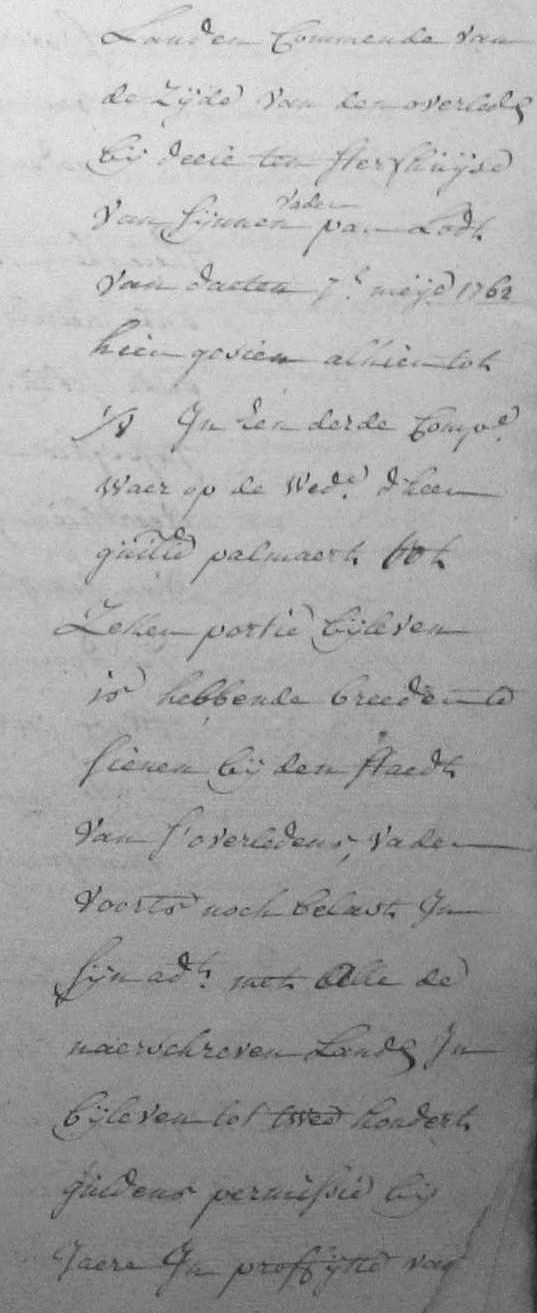 Landen Commende van
de Zijde van den overleds
bij deele ten sterfhuijse
van sijnnen vader
van daeten 7e meije 1762
hier gesien alhier tot
In een derde Compe
waer op de Wede d'heer
palmaert tot
Zeker portie bijleven
is hebbende breeder te
sienen bij den staedt
van s'overledens vader
voorts noch belast In
sijn adt met Alle de
naerschreven Lands In
bijleven tot twee hondert
guldens permissie bij
Jaere In proffijtte van